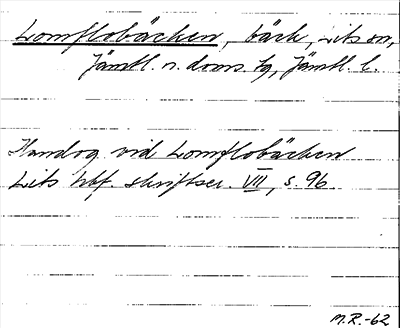 Lomflobäcken, bäck, Lits sn,
Jämtl. n. doms. hg, Jämtl. l.
Handog vid Lomflobäcken
Lits hbf. skriftser. VIII, s. 96
M.R.-62